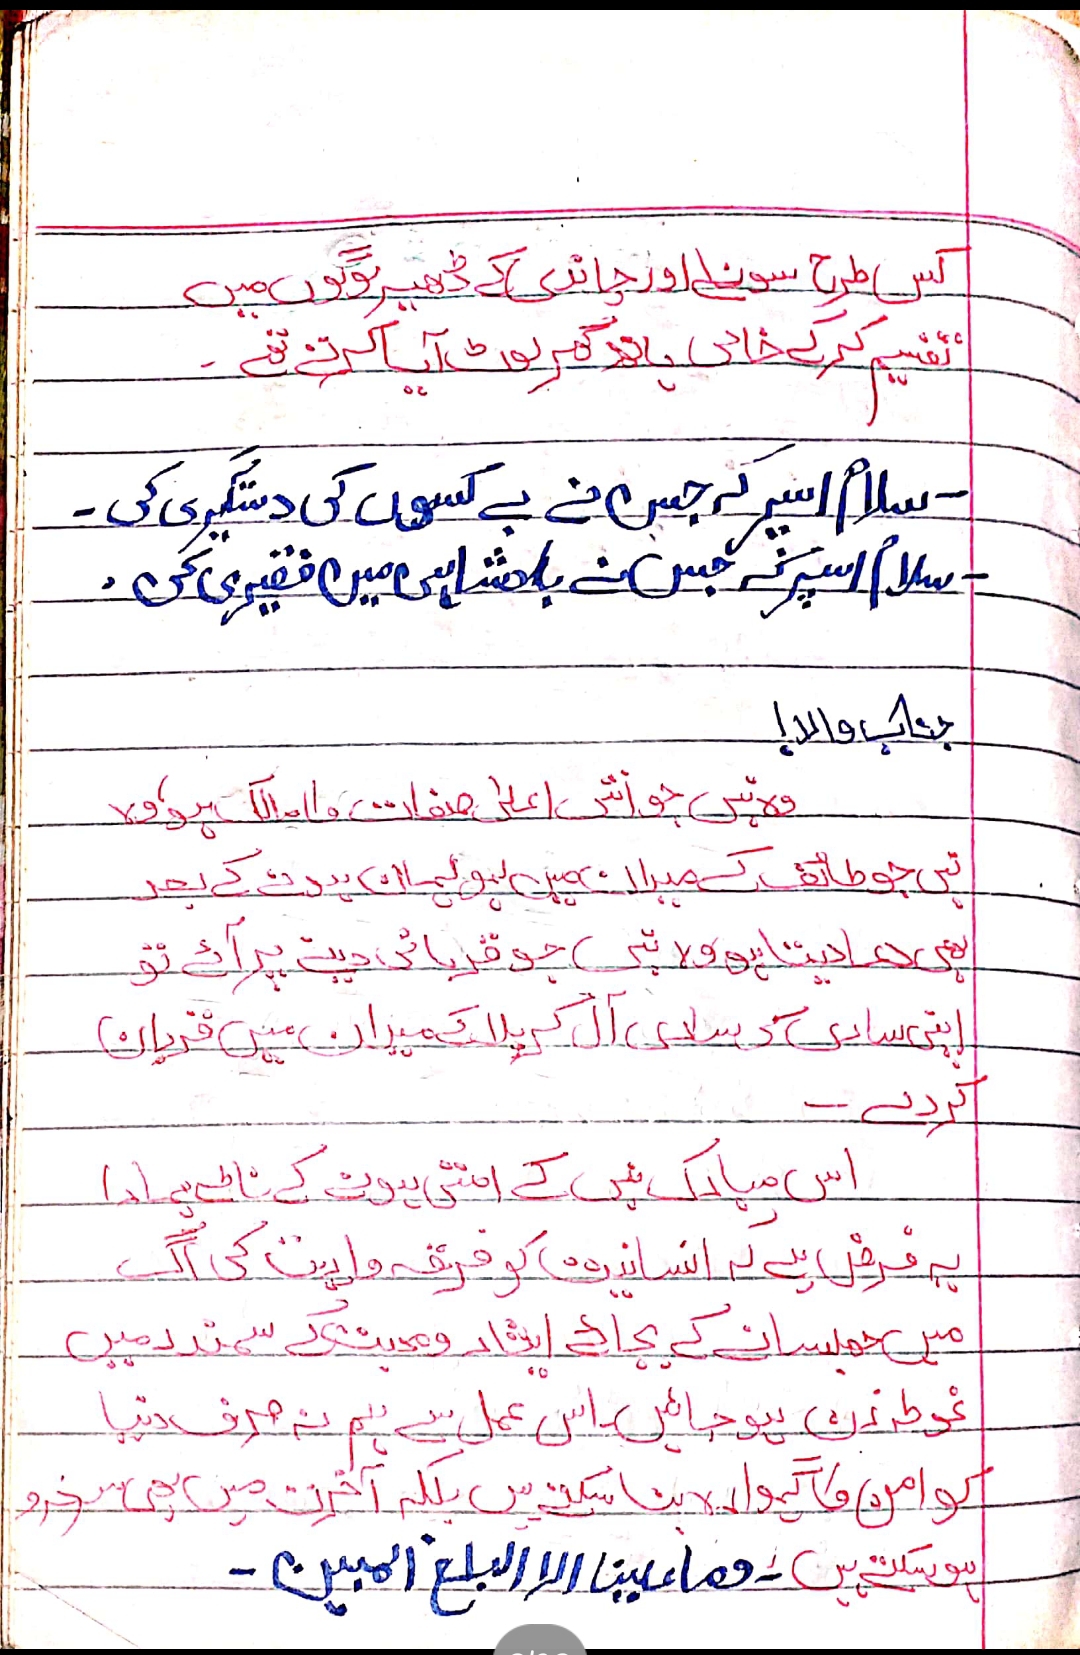 کس طرح سونے اور چاندی کے ڈھیر لوگوں میں
تقسیم کر کے خالی ہاتھ گھر لوٹ آیا کرتے تھے ۔
- سلام اسپر کہ جس نے بے کسوں کی دستگیری کی -
- سلام اسپر کہ جس نے بادشاہی میں فقیری کی ۔
جناب والا!
وہ نبی جو اتنی اعلیٰ صفات کا مالک ہو، وہ
نبی جو طائف کے میدان میں لہولہان ہونے کے بعد
بھی دعا دیتا ہو وہ نبی جو قربانی دینے پر آئے تو
اپنی ساری کی ساری آل کربلا کے میدان میں قربان
کردے ۔
اس مبارک نبی کے امتی ہونے کے ناطے ہمارا
یہ فرض ہے کہ انسانیت کو فرقہ واریت کی آگ
میں جھلسانے کے بجائے ایثار و محبت کے سمندر میں
غوطہ زن ہو جائیں۔ اس عمل سے ہم نہ صرف دنیا
کو امن کا گہوارہ بنا سکتے ہیں بلکہ آخرت میں بھی سرخرو
ہو سکتے ہیں ۔ وما علینا الا البلغ المبین ۔